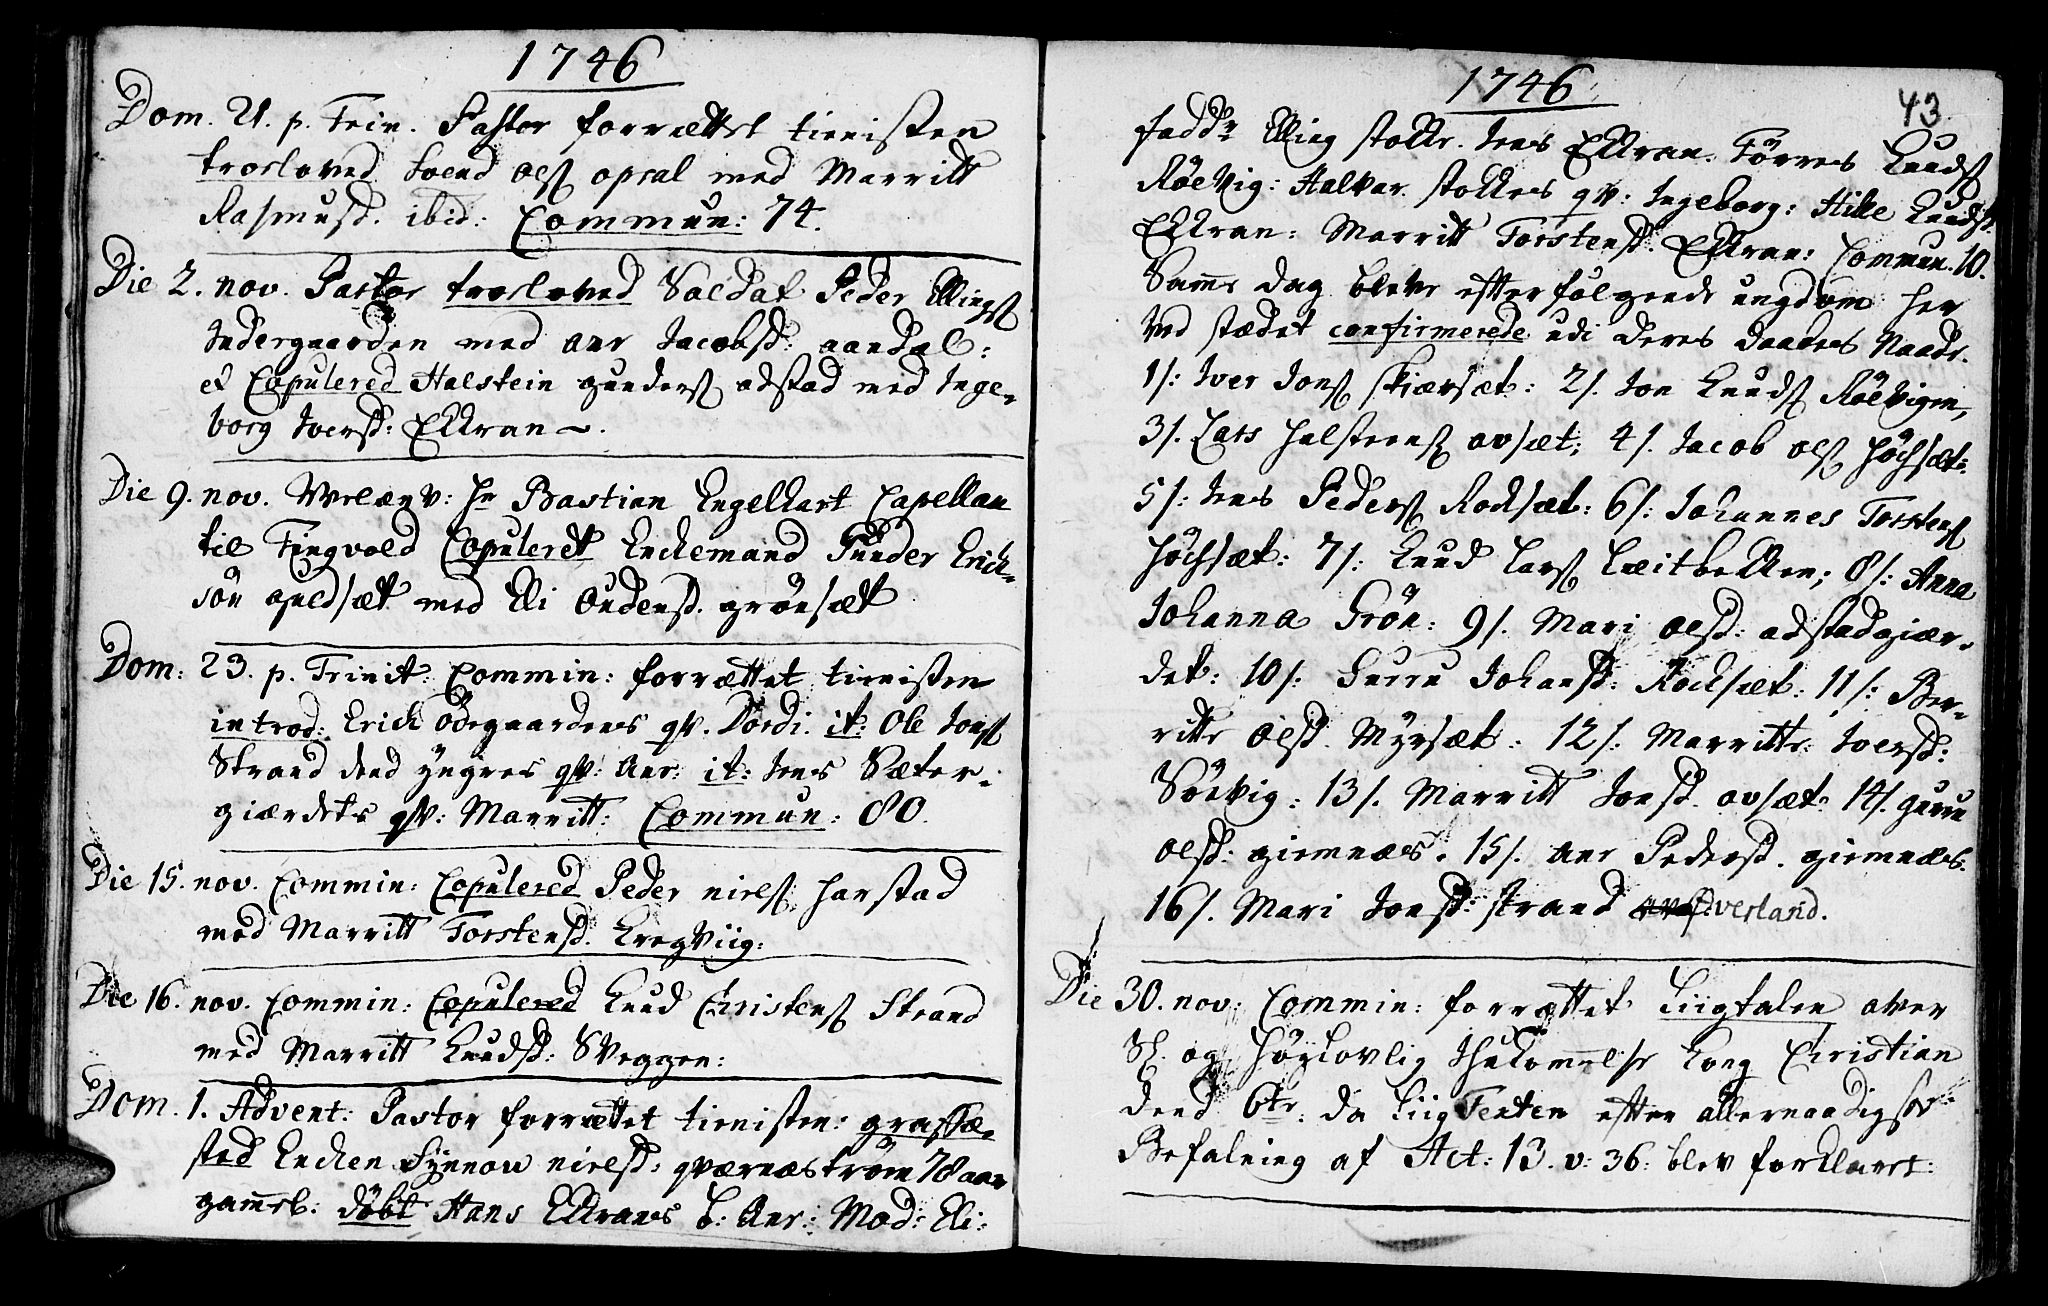 1746
Dom. 21. p. Trin. Pastor forrættet tienisten
troloved Svend Ols opsal med Marritt
Rasmusd. ibid: Commun: 74.
Die 2. nov. Pastor troloved Soldat Peder Ellings
Indergaarden med Ane Jacobsd: aandal:
et Copulered Halstein gunders adstad med Inge-
borg Iversd: Eckran.
Die 9. nov. Velærv: Hr Bastian Engelhart Capellan
til Tingvold Copuleret Enckemand Gunder Erich-
sön guldsæt med Eli Oudensd. grönsæt
Dom: 23. p. Trinit: Commin: forrættet tienisten
introd: Erich Ödegaardens qv. Dordi. it: Ole Jons
Strand dend yngres qv: Ane: it: Jens Sæter-
giærdets qv: Marritt: Commun: 80.
Die 15. nov. Commin: Copulered Peder niels harstad
med Marritt Torstensd. Kregviig:
Die 16. nov. Commin: Copulered Knud Christens Strand
med Marritt Knudsd: Sveggen:
Dom. 1. Advent: Pastor forrættet tienisten: græssæ-
sted Encken Synnov nielsd: qværneström 78 aar
gamel: döbt Hans Eckrans b: Ane: Mod: Eli:
1746
43
fadd Elling stocke. Jens Eckran. Törres Knuds
Röevig: Halvar stockes qv: Ingeborg: Hille Knudsd.
Eckran: Marritt Torstensd. Eckran: Commun. 10.
Samme dag bleve efterfölgende ungdom her
ved stædet confirmerede udi deres daabes Naade.
1/: Iver Jons skiærsæt: 2/. Jon Knuds Röevigen,
3/. Lars halsteens ovsæt; 4/. Jacob ols höchsæt:
5/: Jens Peders Rodsæt: 6/: Johannes Torstens
höchsæt: 7/: Knud Lars Leitbecken; 8/: Anna
Johanna Grön: 9/. Mari olsd: adstadgiær-
det: 10/: Gurru Johansd: Röchsæt: 11/: Ber-
ritte Olsd. Myrsæt: 12/: Marritte: Iversd:
Sörvig: 13/. Marritt Jonsd. ovsæt: 14/. gurru
olsd: giemnæs. 15/. Ane Pedersd. giemnæs.
16/. Mari Jonsd: strand verland.
Die 30. nov: Commin: forrættet Liigtalen over
Sl. og höylovlig Ihukommelse Kong Christian
dend 6te: da Liig Texten efter allernaadigste
Befalning af Act: 13. v: 36: blev forklaret: